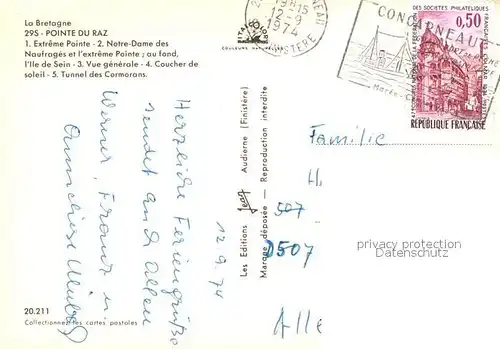 La Bretagne
29S - POINTE DU RAZ
1. Extrême Pointe - 2. Notre-Dame des
Naufragés et l'extrême Pointe ; au fond,
l'Ile de Sein - 3. Vue générale - 4. Coucher de
soleil - 5. Tunnel des Cormorans.
COULEURS NATURELLES
19H15
12-9
1974
FINISTERE
CONCARNEAU
FEDERATION DES SOCIETES PHILATELIQUES FRANÇAISES
0,50
RÉPUBLIQUE FRANÇAISE
Herzliche Feriengrüße
sendet Euch allen
Werner, Franz u.
Anneliese
12.9.74
Les Editions Jean Audierne (Finistère)
Marque déposée - Reproduction interdite
Familie
H
507
D507
Alle
privacy protection
Datenschutz
20.211
Collectionnez les cartes postales